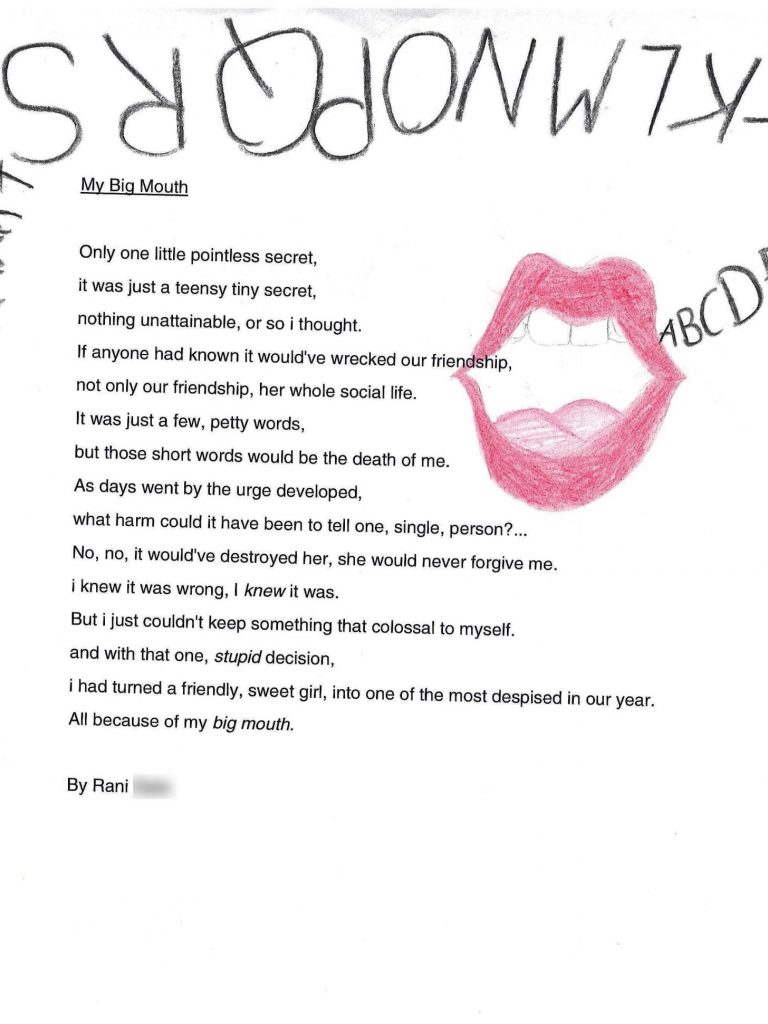 KLMNOPQRS
My Big Mouth
Only one little pointless secret,
it was just a teensy tiny secret,
nothing unattainable, or so i thought.
ABCD
If anyone had known it would've wrecked our friendship,
not only our friendship, her whole social life.
It was just a few, petty words,
but those short words would be the death of me.
As days went by the urge developed,
what harm could it have been to tell one, single, person?...
No, no, it would've destroyed her, she would never forgive me.
i knew it was wrong, I knew it was.
But i just couldn't keep something that colossal to myself.
and with that one, stupid decision,
i had turned a friendly, sweet girl, into one of the most despised in our year.
All because of my big mouth.
By Rani